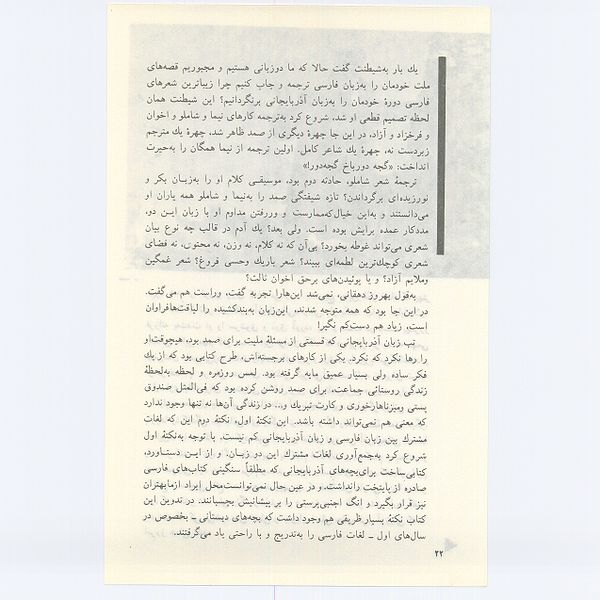 یك بار به‌شیطنت گفت حالا که ما دوزبانی هستیم و مجبوریم قصه‌های
ملت خودمان را به‌زبان فارسی ترجمه و چاپ کنیم چرا زیباترین شعرهای
فارسی دورهٔ خودمان را به‌زبان آذربایجانی برنگردانیم؟ این شیطنت همان
لحظه تصمیم قطعی او شد، شروع کرد به‌ترجمه کارهای نیما و شاملو و اخوان
و فرخزاد و آزاد، در این جا چهرهٔ دیگری از صمد ظاهر شد، چهرهٔ یك مترجم
زبردست نه، چهرهٔ یك شاعر کامل. اولین ترجمه از نیما همگان را به‌حیرت
انداخت: «گجه دورباخ گجه‌دورا!»
ترجمهٔ شعر شاملو، حادثه دوم بود، موسیقی کلام او را به‌زبان بکر و
نورزیده‌ای برگرداندن؟ تازه شیفتگی صمد را به‌نیما و شاملو همه یاران او
می‌دانستند و به‌این خیال که‌ممارست و وررفتن مداوم او با زبان این دو،
مددکار عمده برایش بوده است. ولی بعد؟ یك آدم در قالب چه نوع بیان
شعری می‌تواند غوطه بخورد؟ بی‌آن که نه کلام، نه وزن، نه محتوی، نه فضای
شعری کوچك‌ترین لطمه‌ای ببیند؟ شعر باریك وحسی فروغ؟ شعر غمگین
وملایم آزاد؟ و یا پوئیدن‌های برحق اخوان ثالث؟
به‌قول بهروز دهقانی، نمی‌شد این‌هارا تجربه گفت، وراست هم می‌گفت.
در این جا بود که همه متوجه شدند، این‌زبان به‌بندکشیده را لیاقت‌هافراوان
است، زیاد هم دست‌کم نگیر!
تب زبان آذربایجانی که قسمتی از مسئلهٔ ملیت برای صمد بود، هیچوقت‌او
را رها نکرد که نکرد. یکی از کارهای برجسته‌اش، طرح کتابی بود که از یك
فکر ساده ولی بسیار عمیق مایه گرفته بود. لمس روزمره و لحظه به‌لحظهٔ
زندگی روستائی جماعت، برای صمد روشن کرده بود که فی‌المثل صندوق
پستی ومیزناهارخوری و کارت تبریك و... در زندگی آن‌ها نه تنها وجود ندارد
که معنی هم نمی‌تواند داشته باشد. این نکتهٔ اول، نکتهٔ دوم این که لغات
مشترك بین زبان فارسی و زبان آذربایجانی کم نیست. با توجه به‌نکتهٔ اول
شروع کرد به‌جمع‌آوری لغات مشترك این دو زبان. و از این دستاورد،
کتابی‌ساخت برای‌بچه‌های آذربایجانی که مطلقاً سنگینی کتاب‌های فارسی
صادره از پایتخت رانداشت. و در عین حال نمی‌توانست‌محل ایراد ازمابهتران
نیز قرار بگیرد و انگ اجنبی‌پرستی را بر پیشانیش بچسبانند. در تدوین این
کتاب نکتهٔ بسیار ظریفی هم وجود داشت که بچه‌های دبستانی ـ بخصوص در
سال‌های اول ـ لغات فارسی را به‌تدریج و با راحتی یاد می‌گرفتند.
۲۲